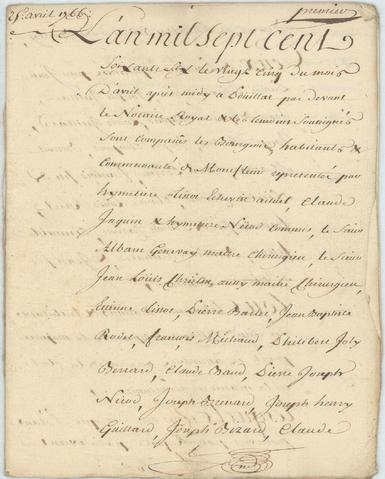 25 avril 1766
premier
L'an mil sept cent
Soixante six le vingt cinq du mois
D'avril après midy a par devant
le Notaire Royal & les temoins Soussignés
Sont comparus les Bourgeois habitants &
Communauté de representée par
hymetiere Echevin Claude
Jaquin & hymetiere Nicod Commis, le Sieur
Alban Genevay maitre Chirurgien, le Sieur
Jean Louis aussy maitre Chirurgien,
Etienne Pierre Jean Baptiste
François Michaud, Philibert Joly
Claude Baud, Pierre Joseph
Nicod, Joseph Joseph henry
Gaillard, Joseph Bezard, Claude